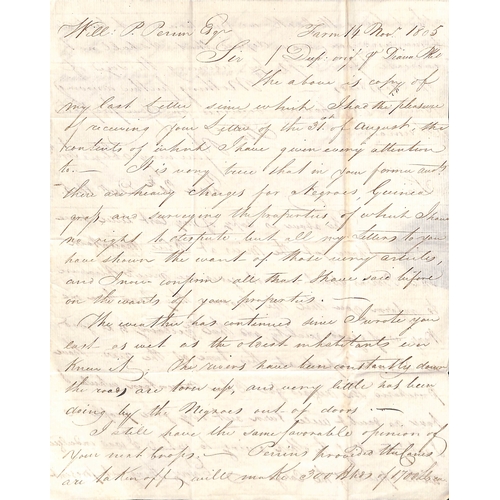 Will: P. Perrin Esqr Farm 14 Novr. 1805
Sir / Dup: orig: pr Diana
The above is copy of
my last Letter since which I had the pleasure
of receiving your Letter of the 3d. of August, the
contents of which I have given every attention
to. — It is very true that in your former
there are heavy charges for Negroes, Guinea
grass and surveying the properties, of which I have
no right to dispute but all my Letters to you
have shown the want of those very articles,
and I now confirm all that I have said before
on the wants of your properties. —
The weather has continued since I wrote you
last as wet as the oldest inhabitants ever
knew it, The rivers have been constantly down
the roads are tore up, and very little has been
doing by the Negroes out of doors. —
I still have the same favorable opinion of
your next Crops. — Perrins provided the Canes
are taken off, will make 300 Hhds of